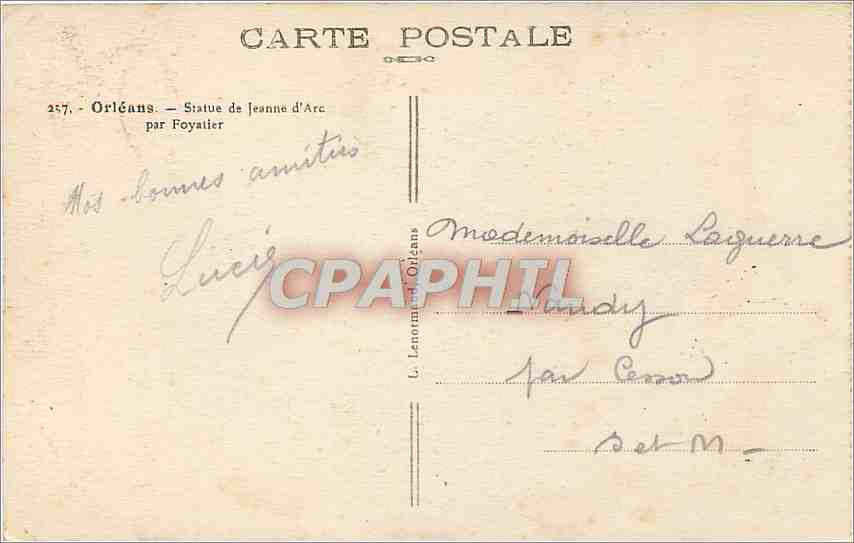 CARTE POSTALE
257. - Orléans. — Statue de Jeanne d'Arc
par Foyatier
Nos bonnes amitiés
Lucie
L. Lenormand, Orléans
CPAPHIL
Mademoiselle Laguerre
Nandy
par Cesson
S et M -